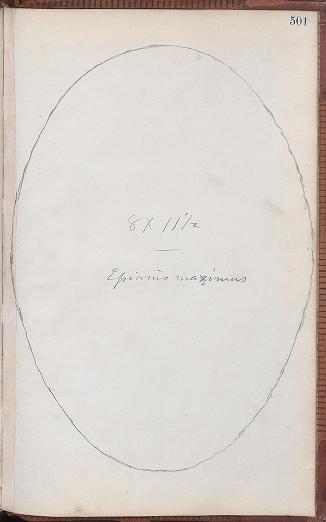 501
8 X 11 1/2
Epiornis maximus